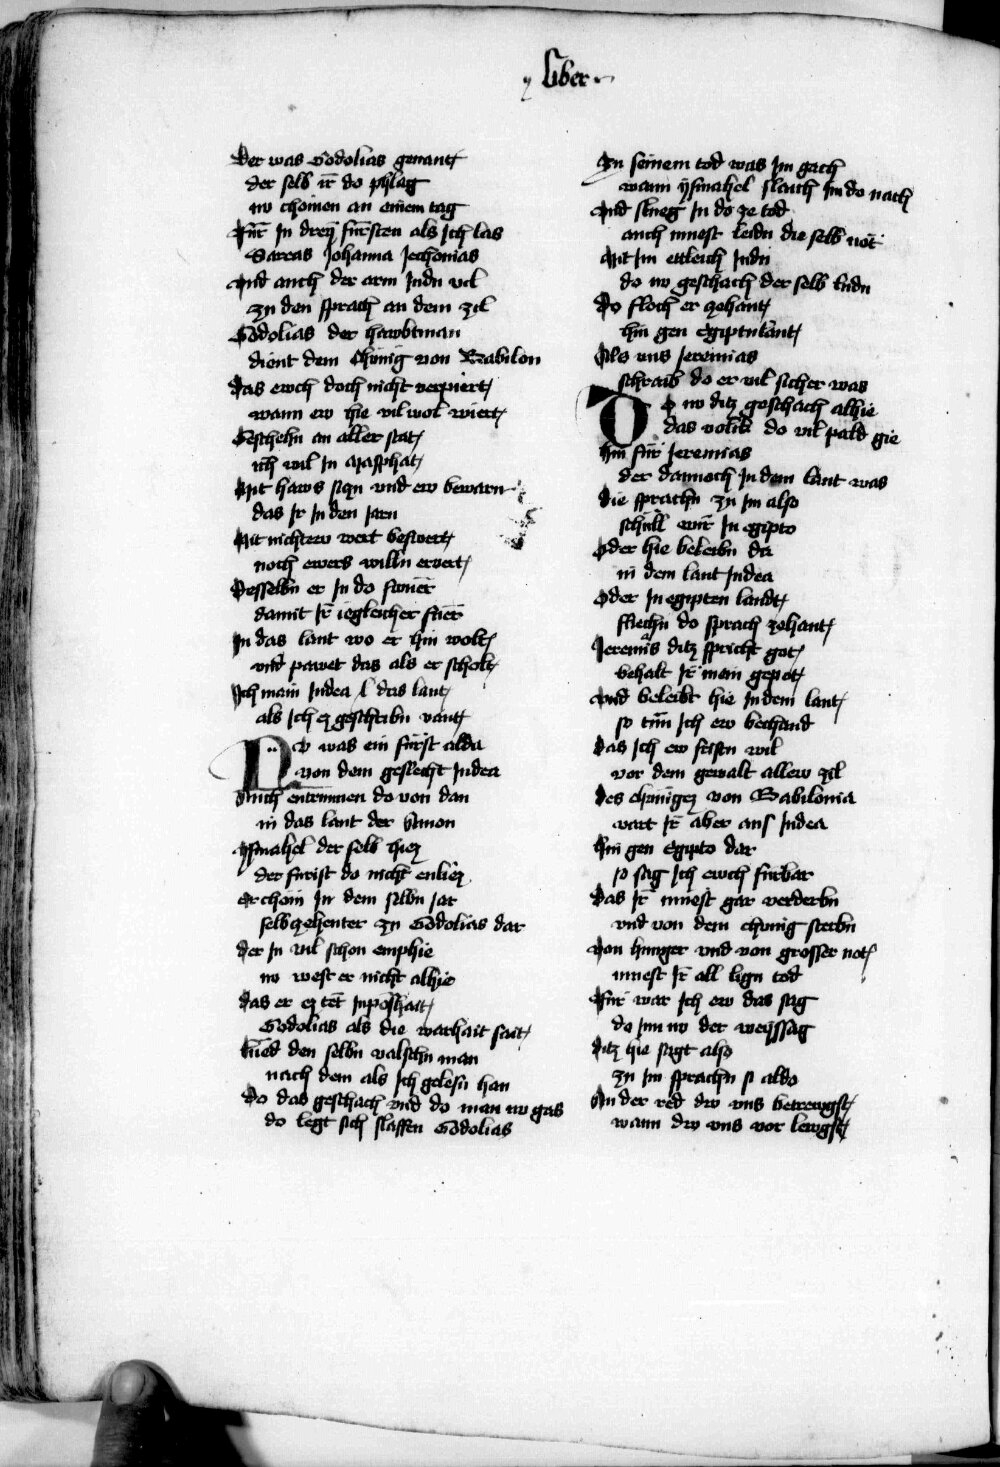 Liber
Der was Godolias genant
der selb ir do phlag
nv chomen an einem tag
Für In dreÿ fürsten als Ich las
Sareas Johanna Jechonias
Vnd auch der arm Judn vil
zu den sprach an dem zil
Godolias der hawbtman
dient dem Chünig von Babilon
Das ewch doch nicht verpiert
wann ew hie vil wol wiert
Geschehn an aller stat
ich wil In Masphat
Mit haws sizn vnd ew bewarn
das Ir In den Jarn
Mit nichtew wert beswert
noch ewers willn entwert
Desselbn er In do swuer
damit Ir iegleicher fuer
In das lant wo er hin wolt
vnd pawet das als er scholt
Ich main Judea das lant
als Ich ez geschribn vant
Nv was ein fürst alda
von dem geslecht Judea
Auch entrunnen do von dan
in das lant der Amon
Ysmahel der selb hiez
der fürist do nicht enliez
Er chom In dem selbn Jar
selbzehenter zu Godolias dar
der In vil schon emphie
nv west er nicht alhie
das er ez tet In poshait
Godolias als die warhait sait
lued den selbn valschn man
nach dem als Ich gelesn han
Do das geschach vnd do man nv gas
do legt sich slaffen Godolias
Zu seinem tod was Im gach
wann ÿsmahel slaich Im do nach
Vnd slueg In do ze tod
auch muest leidn die selb not
Mit Im ettleich Judn
do nv geschach der selb
Do floch er zehant
hin gen Egiptnlant
Als vns Jeremias
schraib do er vil sicher was
Do nv ditz geschach alhie
das volkh do vil pald gie
Hin für Jeremias
der dannoch In dem lant was
Die sprachn zu Im also
schüll wir In egipto
Oder hie beleibn da
in dem lant Judea
Oder In egipten landt
fliechn do sprach zehant
Jeremias ditz spricht got
behalt Ir mein gepot
Vnd beleibt hie In dem lant
so tun Ich ew bechand
Das Ich ew fristn wil
vor dem gewalt allew zil
Des chünigez von Babilonia
vart Ir aber aus Judea
Hin gen Egipto dar
so sag Ich ewch fürbar
Das Ir muest gar verderbn
vnd von dem chünig sterbn
Von hunger vnd von grosser not
muest Ir all lign tod
Für war Ich ew das sag
do Im nv der weÿssag
Ditz hie sagt also
zu Im sprachn si aldo
An der red dw vns betrewgst
wann dw vns vor lewgst